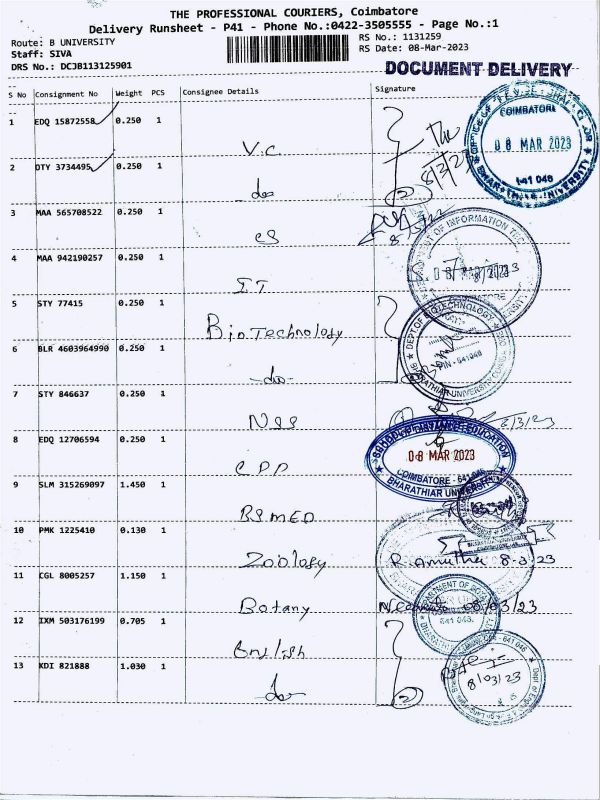 THE PROFESSIONAL COURIERS, Coimbatore
Delivery Runsheet - P41 - Phone No.:0422-3505555 - Page No.:1
Route: B UNIVERSITY
RS No.: 1131259
Staff: SIVA
RS Date: 08-Mar-2023
DRS No.: DCJB113125901
DOCUMENT DELIVERY
S No Consignment No Weight PCS Consignee Details Signature
1 EDQ 15872558 0.250 1 V.C
8/3/23
COIMBATORE
08 MAR 2023
641 046
2 OTY 3734495 0.250 1 -do-
3 MAA 565708522 0.250 1 CS
4 MAA 942190257 0.250 1 IT
DEPARTMENT OF INFORMATION TEC
5 STY 77415 0.250 1 Bio.Technology
DEPT OF BIOTECHNOLOGY
PIN - 641046
BHARATHIAR UNIVERSITY
6 BLR 4603964990 0.250 1 -do-
7 STY 846637 0.250 1 NSS
8/3/23
8 EDQ 12706594 0.250 1 CDD
SCHOOL OF DISTANCE EDUCATION
08 MAR 2023
COIMBATORE - 641 046
BHARATHIAR UNIVERSITY
9 SLM 315269097 1.450 1
10 PMK 1225410 0.130 1 Zoology
R. Amutha 8-3-23
11 CGL 8005257 1.150 1 Botany
08/03/23
641 046
12 IXM 503176199 0.705 1 English
13 KDI 821888 1.030 1 do
8/03/23